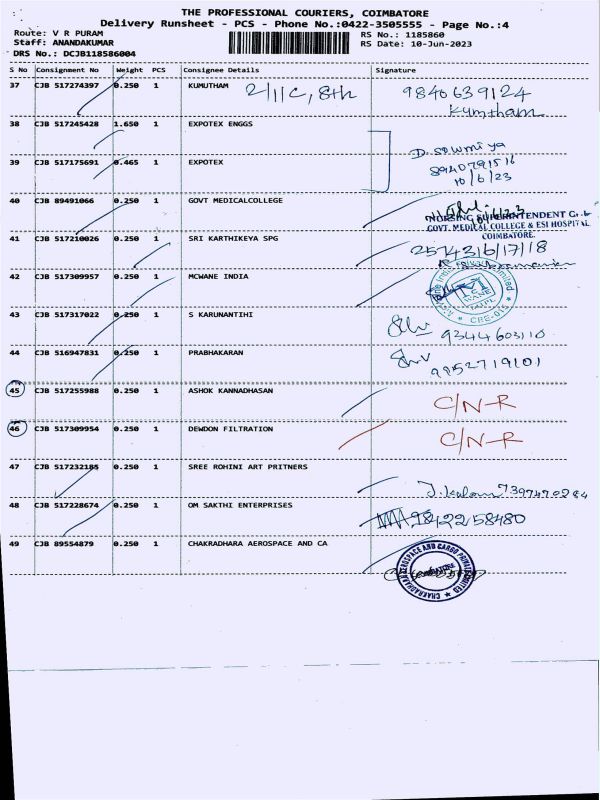 THE PROFESSIONAL COURIERS, COIMBATORE
Delivery Runsheet - PCS - Phone No.:0422-3505555 - Page No.:4
Route: V R PURAM RS No.: 1185860
Staff: ANANDAKUMAR RS Date: 10-Jun-2023
DRS No.: DCJB118586004
S No Consignment No Weight PCS Consignee Details Signature
37 CJB 517274397 0.250 1 KUMUTHAM 2/11C, 8th 9840639124
Kumtham
38 CJB 517245428 1.650 1 EXPOTEX ENGGS
D. Sowmiya
39 CJB 517175691 0.465 1 EXPOTEX 8940791516
10/6/23
40 CJB 89491066 0.250 1 GOVT MEDICALCOLLEGE
NURSING SUPERINTENDENT
GOVT. MEDICAL COLLEGE & ESI HOSPITAL
COIMBATORE
41 CJB 517210026 0.250 1 SRI KARTHIKEYA SPG
42 CJB 517309957 0.250 1 MCWANE INDIA
43 CJB 517317022 0.250 1 S KARUNANTIHI 9344603110
44 CJB 516947831 0.250 1 PRABHAKARAN 9852719101
45 CJB 517255988 0.250 1 ASHOK KANNADHASAN C/N-R
46 CJB 517309954 0.250 1 DEWDON FILTRATION C/N-R
47 CJB 517232185 0.250 1 SREE ROHINI ART PRITNERS
48 CJB 517228674 0.250 1 OM SAKTHI ENTERPRISES 9842258480
49 CJB 89554879 0.250 1 CHAKRADHARA AEROSPACE AND CA
CHAKRADHARA AEROSPACE AND CARGO PRIVATE LIMITED